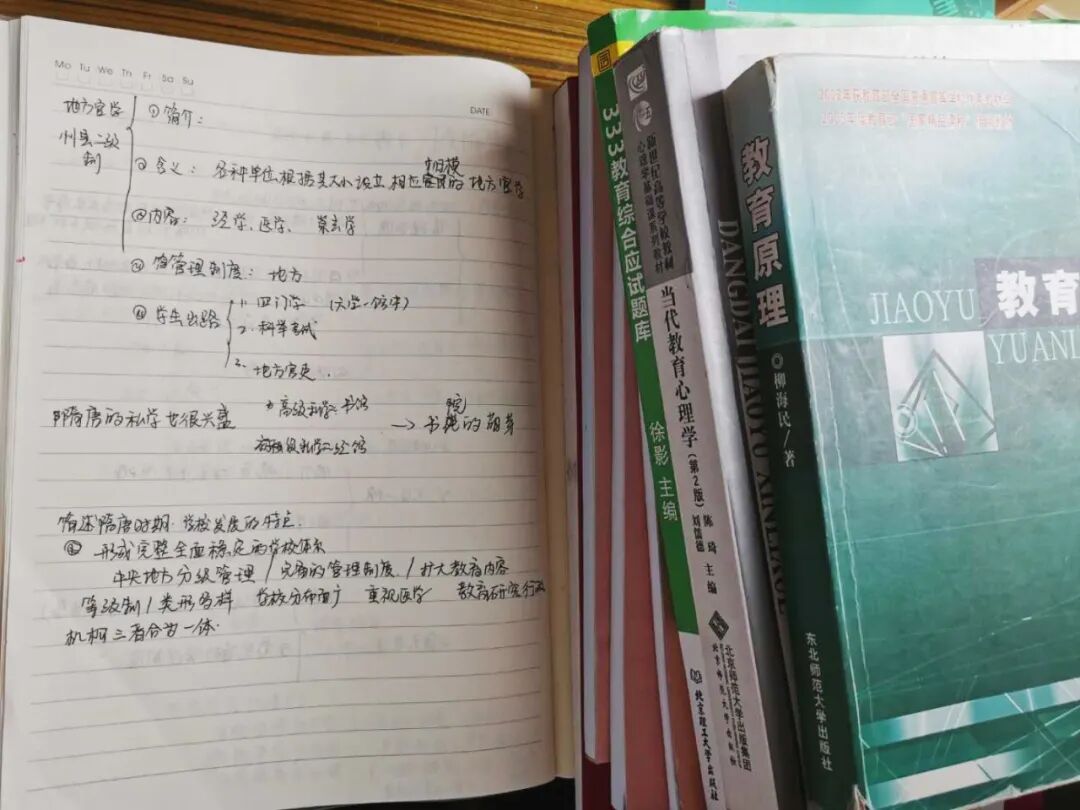 Mo Tu We Th Fr Sa Su
DATE
地方官学
州县二级
制
① 简介：
② 含义：各种单位根据其大小设立相应规模的地方官学
③ 内容：经学、医学、崇玄学
管理制度：地方
学生出路
1. 四门学
2. 科举考试
3. 地方官吏.
隋唐的私学也很兴盛
高级私学：书馆
→ 书院的萌芽
简述隋唐时期学校发展的特点.
① 形成完整全面稳定的学校体系
中央地方分级管理 / 完备的管理制度 / 扩大教育内容
等级制 / 类形多样 学校分布面广 重视医学 教育研究行政
机构三者合为一体.
333教育综合应试题库
徐影 主编
北京理工大学出版社
新世纪高等学校教材
心理学基础课系列教材
当代教育心理学
(第2版)
陈琦 刘儒德 主编
北京师范大学出版集团
北京师范大学出版社
DANGDAI JIAOYU XINLIXUE
教育原理
柳海民/著
东北师范大学出版社
JIAOYU
教育
YUANL